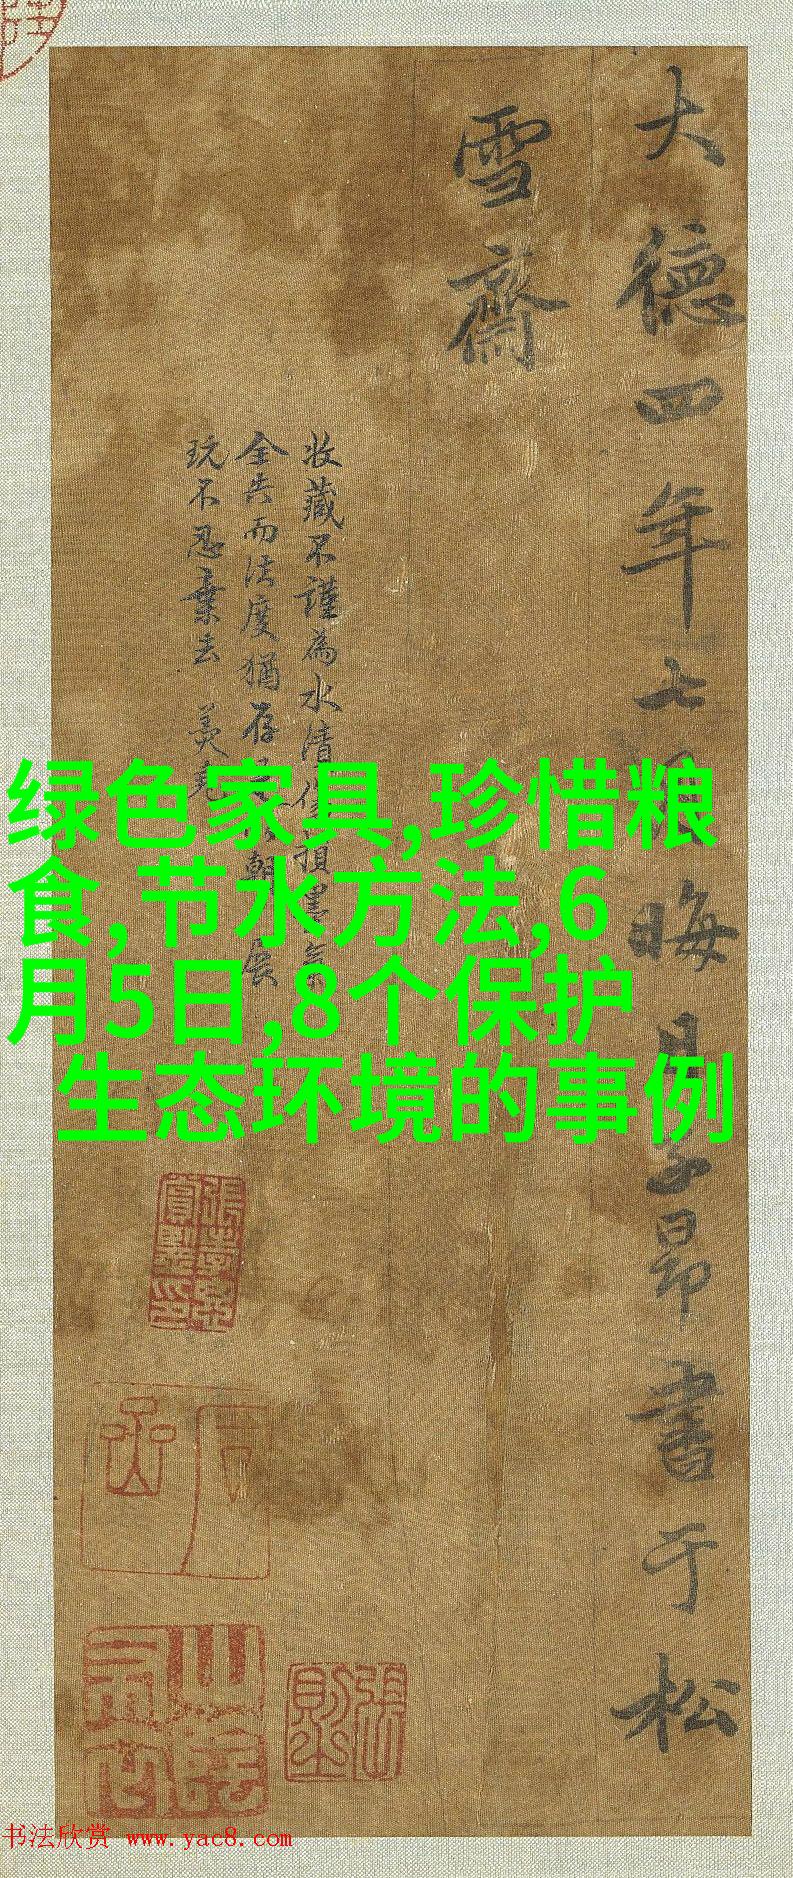 大德四年七月晦日子昂書于松
雪齋
收藏不謹為水漬傷損墨氣
全失而法度猶存朝展
玩不忍棄去
绿色家具,珍惜粮
食,节水方法,6
月5日,8个保护
生态环境的事例
張孝思賞鑒印
張則之
书法欣赏 www.yac8.com